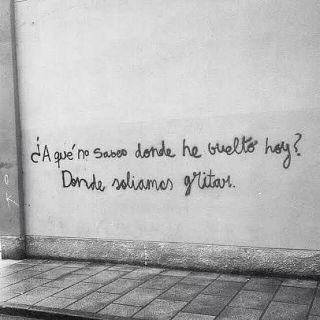 ¿A qué no sabes donde he vuelto hoy?
Donde soliamos gritar.
OK